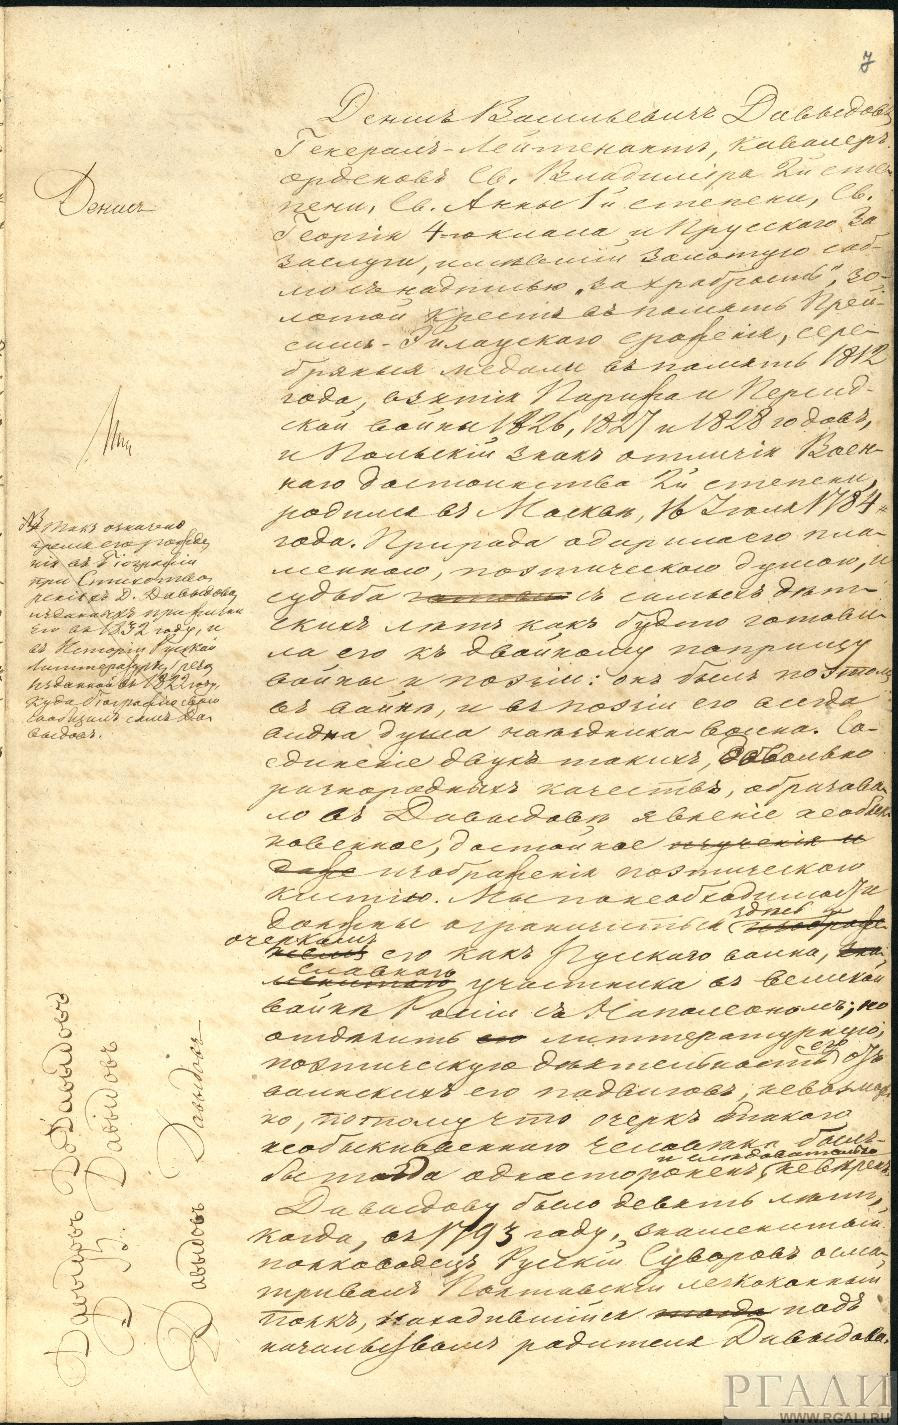 7
Денисъ Васильевичъ Давыдовъ,
Генералъ-Лейтенантъ, Кавалеръ
орденовъ Св. Владиміра 2й сте-
пени, Св. Анны 1й степени, Св.
Георгія 4го класса и Прусскаго За
заслуги, имѣвшій золотую саб-
лю съ надписью „за храбрость“, зо-
лотой крестъ въ память Прей-
сишъ-Эйлаускаго сраженія, сере-
бряныя медали въ память 1812
года, взятія Парижа и Персид-
ской войны 1826, 1827 и 1828 годовъ,
и Польскій знакъ отличія Воен-
наго достоинства 2й степени,
родился въ Москвѣ, 16 Іюля 1784
года. Природа одарила его пла-
менною, поэтическою душою, и
судьба съ самыхъ дѣт-
скихъ лѣтъ какъ будто готови-
ла его къ двойному поприщу
войны и поэзіи: онъ былъ поэтомъ
въ войнѣ, и въ поэзіи его всегда
видна душа наѣздника-воина. Со-
единеніе двухъ такихъ, довольно
разнородныхъ качествъ, образова-
ло въ Давыдовѣ явленіе необык-
новенное, достойное изученія и
даже изображенія поэтическою
кистію. Мы по необходимости
должны ограничиться здѣсь
очеркомъ его какъ Русскаго воина,
славнаго участника въ великой
войнѣ Россіи съ Наполеономъ; но
отдѣлить его литературную,
поэтическую дѣятельность его отъ
воинскихъ его подвиговъ, невозмож-
но, потому что очеркъ такого
необыкновеннаго человѣка былъ-
бы тогда одностороненъ, и слѣдовательно невѣренъ.
Давыдову было девять лѣтъ,
когда, въ 1793 году, знаменитый
полководецъ Русскій Суворовъ осма-
тривалъ Полтавскій легкоконный
полкъ, находившійся тогда подъ
начальствомъ родителя Давыдова.
Денисъ
Такъ означено
время его рожде-
нія въ Біографіи
при Стихотво-
реніяхъ Д. Давыдова,
изданныхъ при жизни
его въ 1832 году, и
въ Исторіи Русской
Литературы, Греча
изданной въ 1822 году,
куда біографію свою
сообщилъ самъ Да-
выдовъ.
Давыдовъ Давыдовъ
Д. Давыдовъ
Давыдовъ Давыдовъ
РГАЛИ
WWW.RGALI.RU